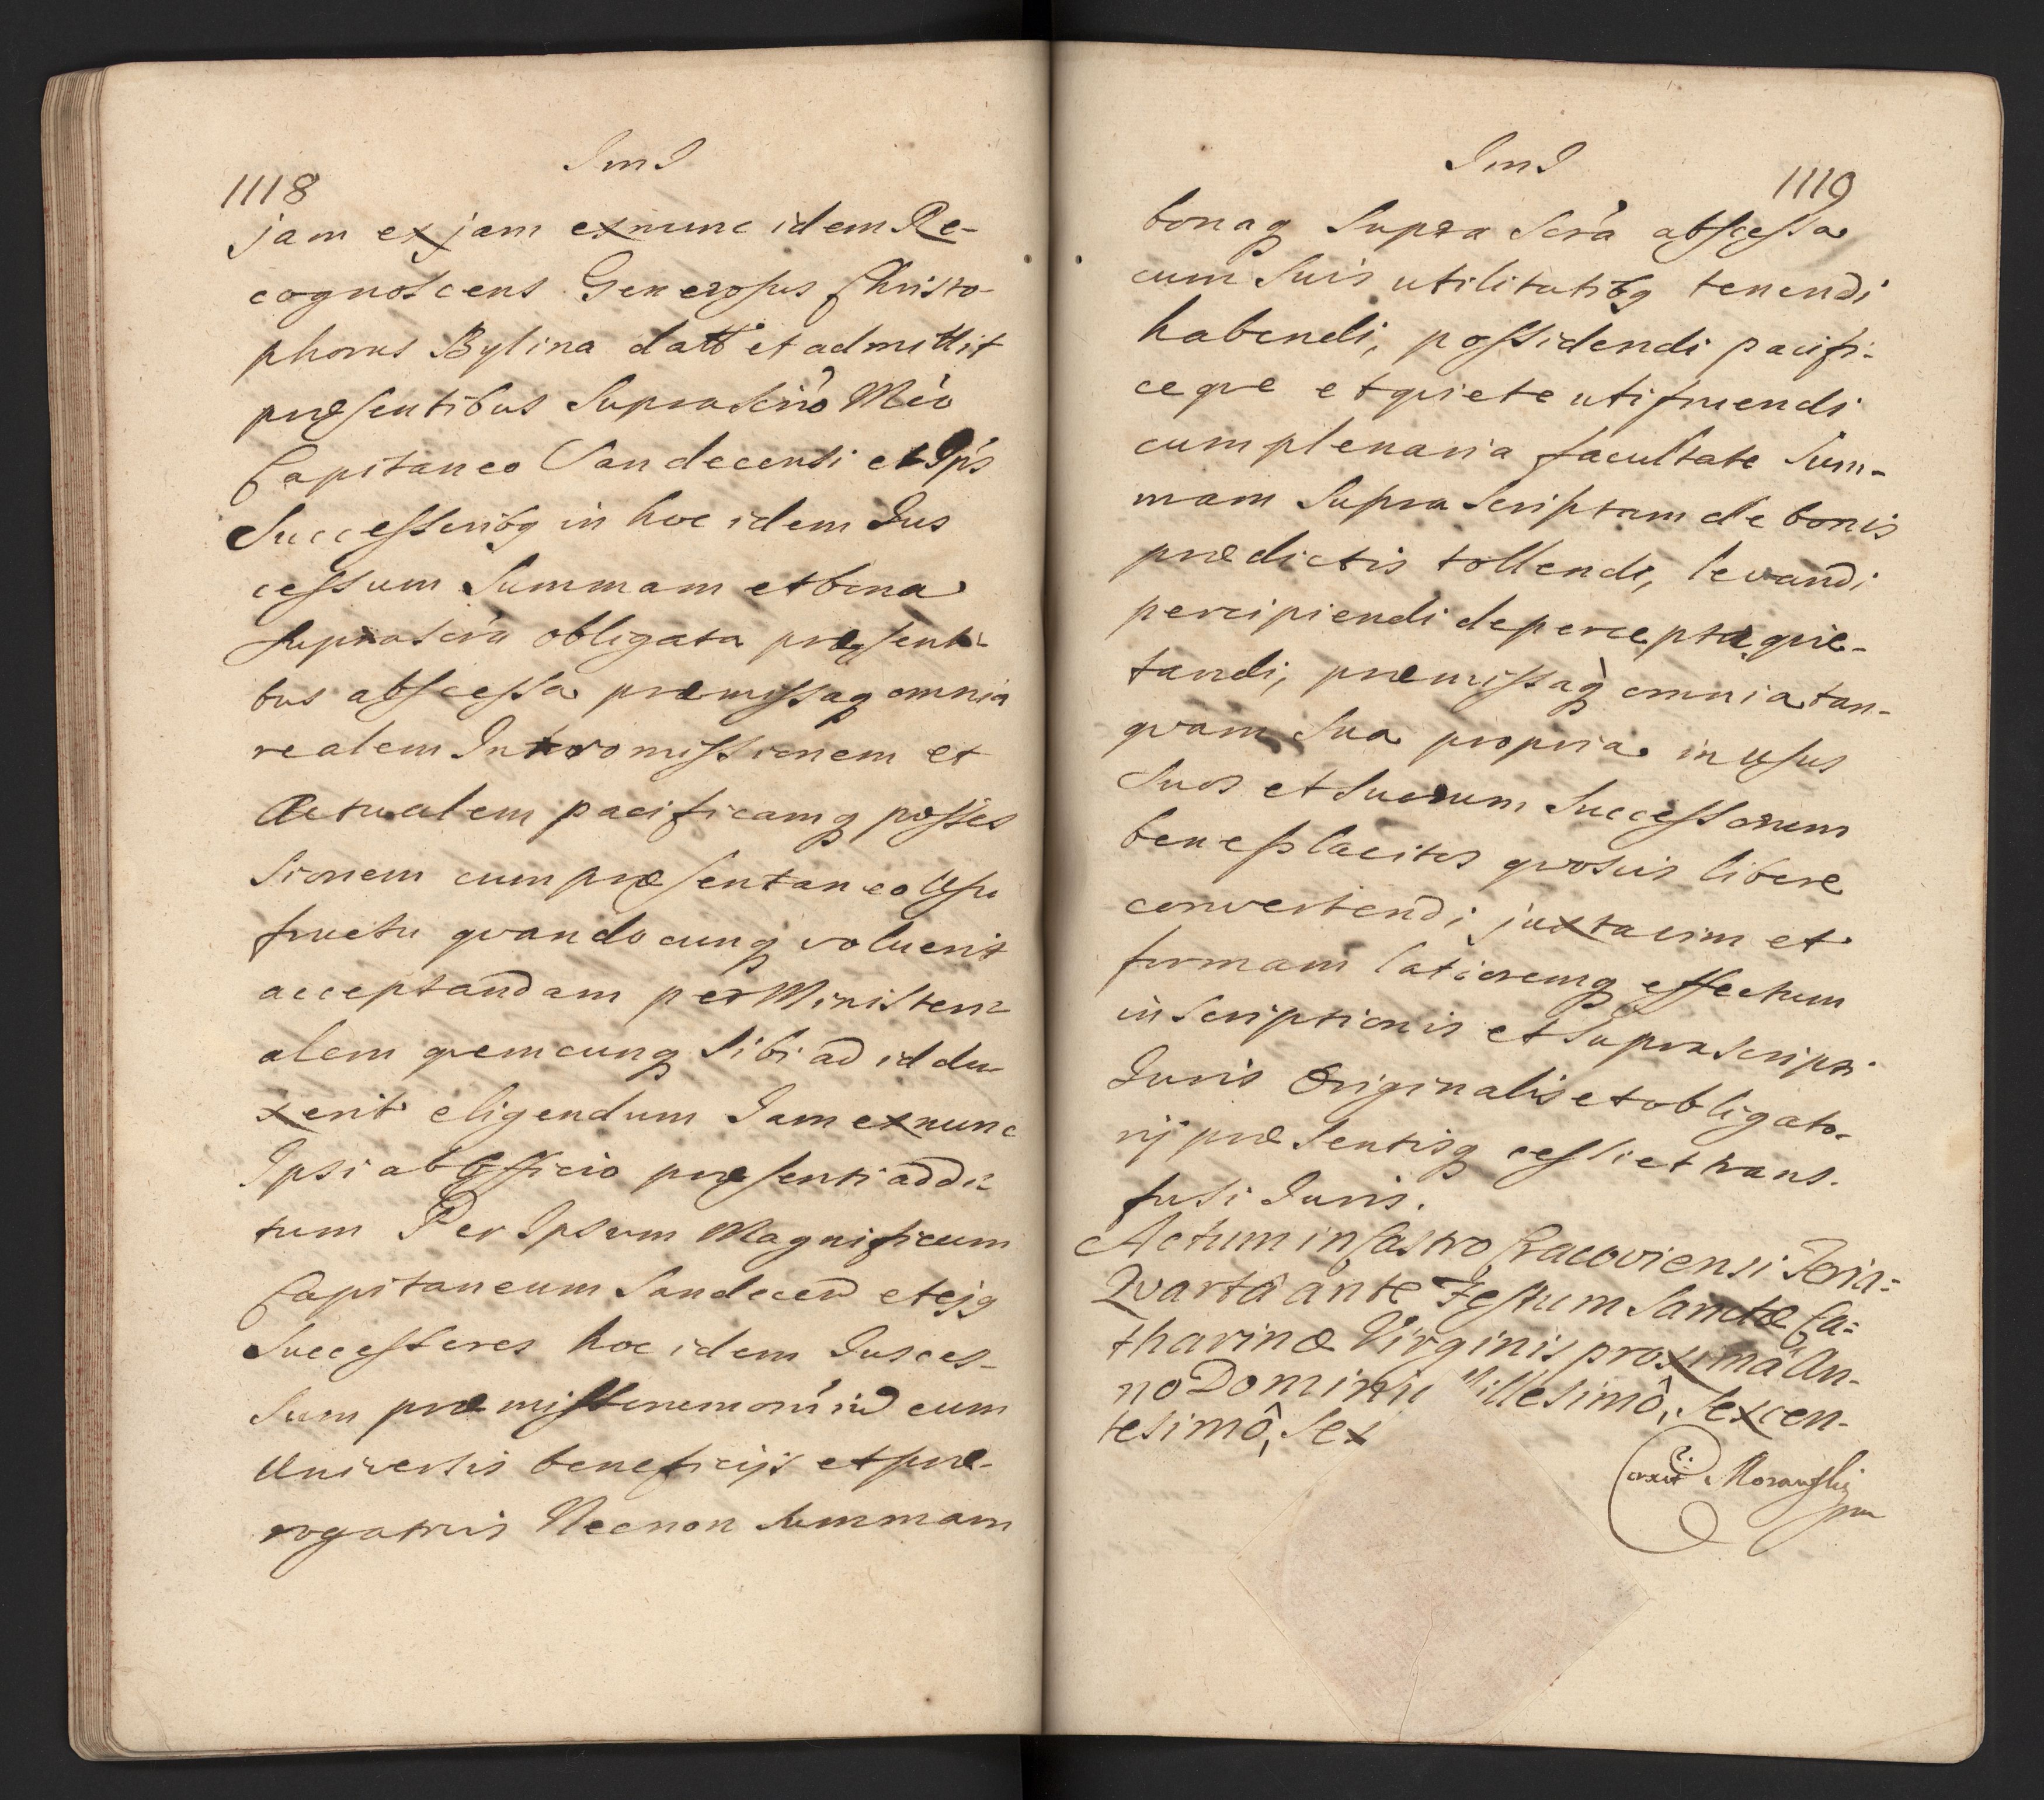 1118
jam ex jam exnunc idem Re-
cognoscens Generosus Christo-
phorus Bylina datt et admittit
præsentibus Suprascrō Mco
Capitaneo Sandecensi et Ips
Successoribq in hoc idem Ius
cessum Summam et bona
Suprascra obligata præsenti-
bus abscessa præmissaq omnia
realem Intromissionem et
Actualem pacificamq posses
sionem cum præsentaneo Usu
fructu qvandocunq voluerit
acceptandam per Ministeri-
alem qvemcunq Sibi ad id du-
xerit eligendum Iam exnunc
Ipsi ab Officio præsenti addi-
tum Per Ipsum Magnificum
Capitaneum Sandecen et ejq
Successores hoc idem Jus ces-
sum præmissorum omnid cum
Universis beneficijs et præ-
rogativis Necnon Summam
1119
bonaq Supra Scra abscessa
cum Suis utilitatibq tenendi
habendi, possidendi pacifi-
ceqve et qviete utifruendi
cum plenaria facultate Sum-
mam Supra Scriptam de bonis
prædictis tollendi, levandi
percipiendi de perceptaqve qvie-
tandi, præmissaq omnia tan-
qvam Sua propria in Usus
Suos et Suorum Successorum
beneplacitos qvosvis libere
convertendi juxta vim et
formam latioremq effectum
inscriptionis et Supra Scripti
Juris Originalis et obligato-
rij præsentisq cessi et trans-
fusi Juris.
Actum in Castro Cracoviensi Feria:
Qvarta ante Festum Sanctæ Ca:
tharinæ Virginis proxima An-
no Domini Millesimô, Sexcen-
tesimô, Sex